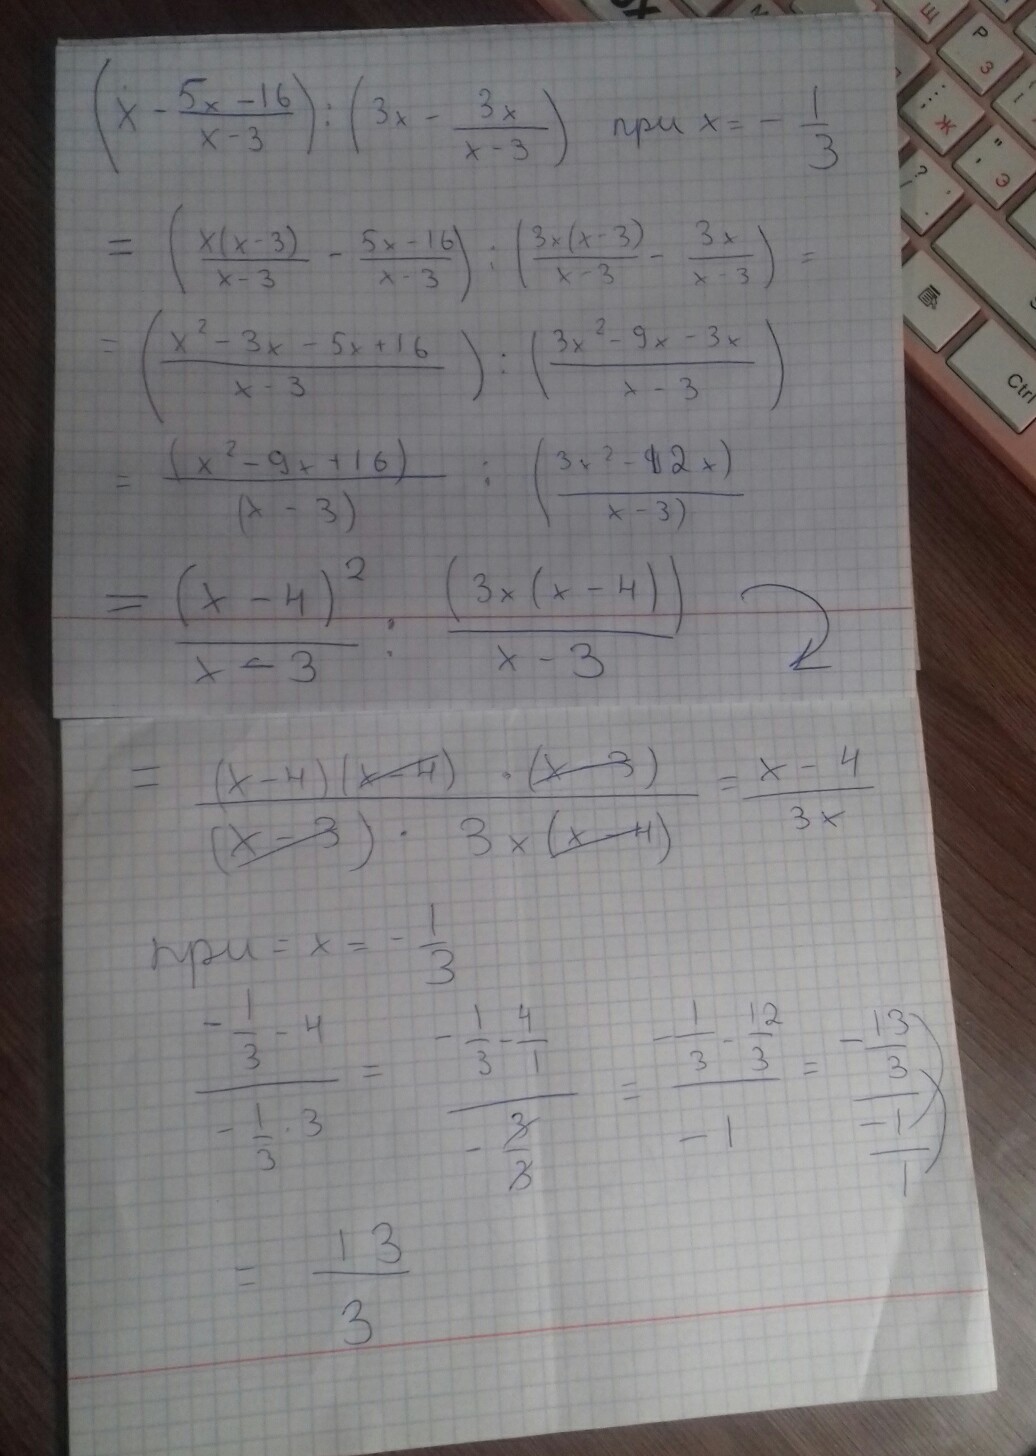 (x - (5x - 16)/(x - 3)) : (3x - 3x/(x - 3)) при x = - 1/3
= (x(x-3)/(x-3) - (5x-16)/(x-3)) : (3x(x-3)/(x-3) - 3x/(x-3)) =
= ((x² - 3x - 5x + 16)/(x - 3)) : ((3x² - 9x - 3x)/(x - 3))
= (x² - 9x + 16)/(x - 3) : ((3x² - 12x)/(x - 3))
= (x - 4)²/(x - 3) : (3x(x - 4))/(x - 3)
= (x-4)(x-4) · (x-3)/((x-3) · 3x(x-4)) = (x - 4)/(3x)
при = x = - 1/3
(- 1/3 - 4)/(- 1/3 · 3) = (- 1/3 - 4/1)/(- 3/3) = (- 1/3 - 12/3)/(-1) = (- 13/3)/(-1/1)
= 13/3
Щ
Р
З
Ж
Э
Ctrl